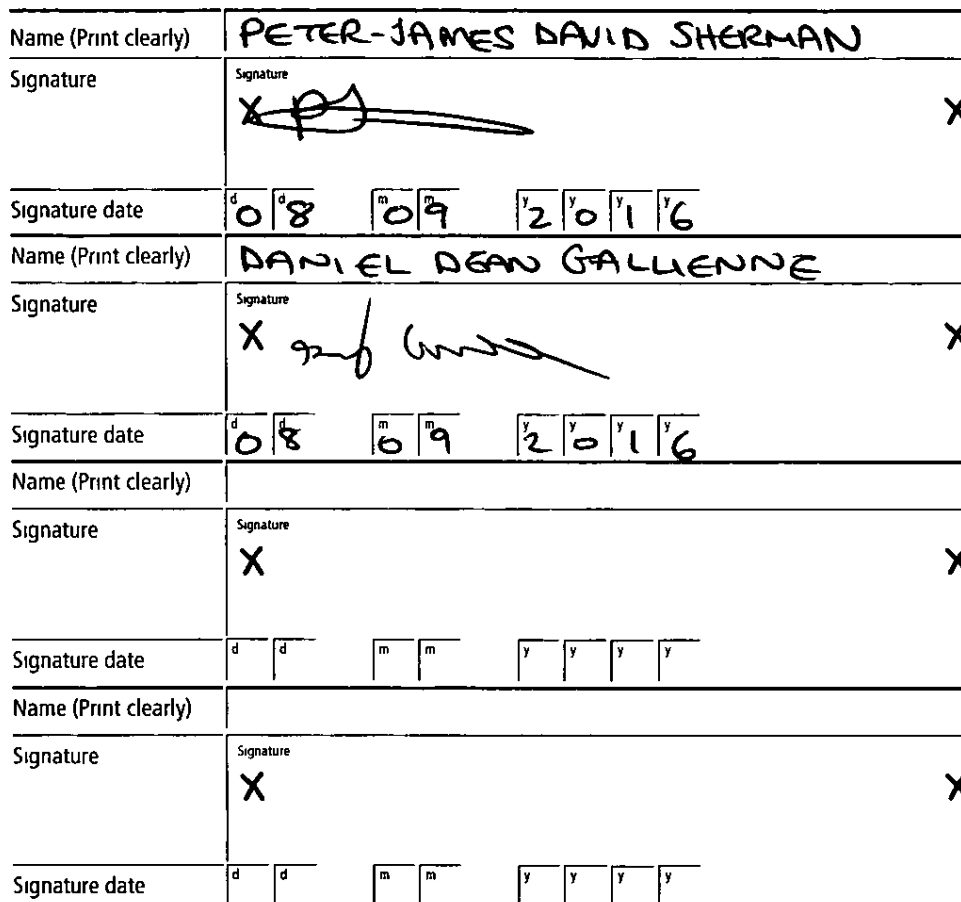 Name (Print clearly) PETER-JAMES DAVID SHERMAN
Signature Signature
X PJ X
Signature date d0 d8 m0 m9 y2 y0 y1 y6
Name (Print clearly) DANIEL DEAN GALLIENNE
Signature Signature
X X
Signature date d0 d8 m0 m9 y2 y0 y1 y6
Name (Print clearly)
Signature Signature
X X
Signature date d d m m y y y y
Name (Print clearly)
Signature Signature
X X
Signature date d d m m y y y y